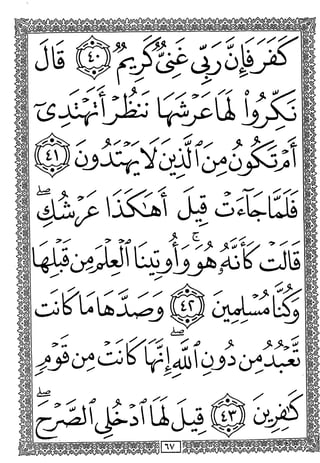 كَفَرَ فَإِنَّ رَبِّي غَنِيٌّ كَرِيمٌ ٤٠ قَالَ
نَكِّرُوا۟ لَهَا عَرْشَهَا نَنظُرْ أَتَهْتَدِىٓ
أَمْ تَكُونُ مِنَ الَّذِينَ لَا يَهْتَدُونَ ٤١
فَلَمَّا جَآءَتْ قِيلَ أَهَٰكَذَا عَرْشُكِ ۖ
قَالَتْ كَأَنَّهُۥ هُوَ ۚ وَأُوتِينَا الْعِلْمَ مِن قَبْلِهَا
وَكُنَّا مُسْلِمِينَ ٤٢ وَصَدَّهَا مَا كَانَت
تَّعْبُدُ مِن دُونِ اللَّهِ ۖ إِنَّهَا كَانَتْ مِن قَوْمٍ
كَٰفِرِينَ ٤٣ قِيلَ لَهَا ادْخُلِى الصَّرْحَ ۖ
٦٧